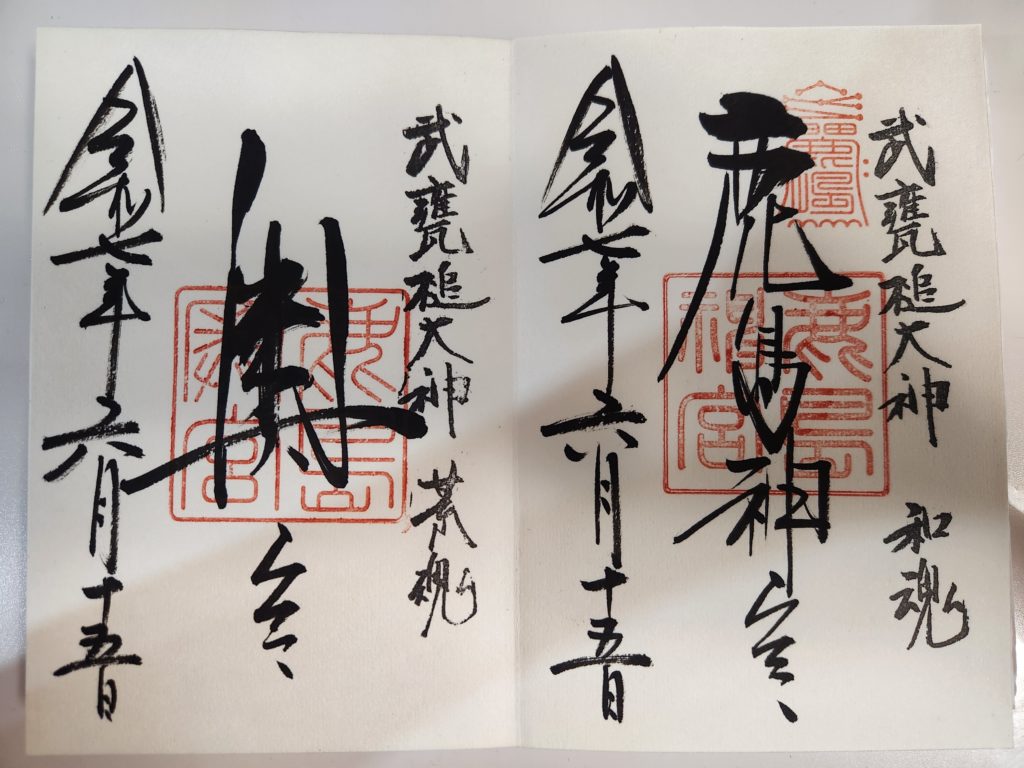 武甕槌大神 和魂
鹿島神宮
鹿島神宮
令和七年六月十五日
武甕槌大神 荒魂
奥宮
鹿島奥宮
令和七年六月十五日